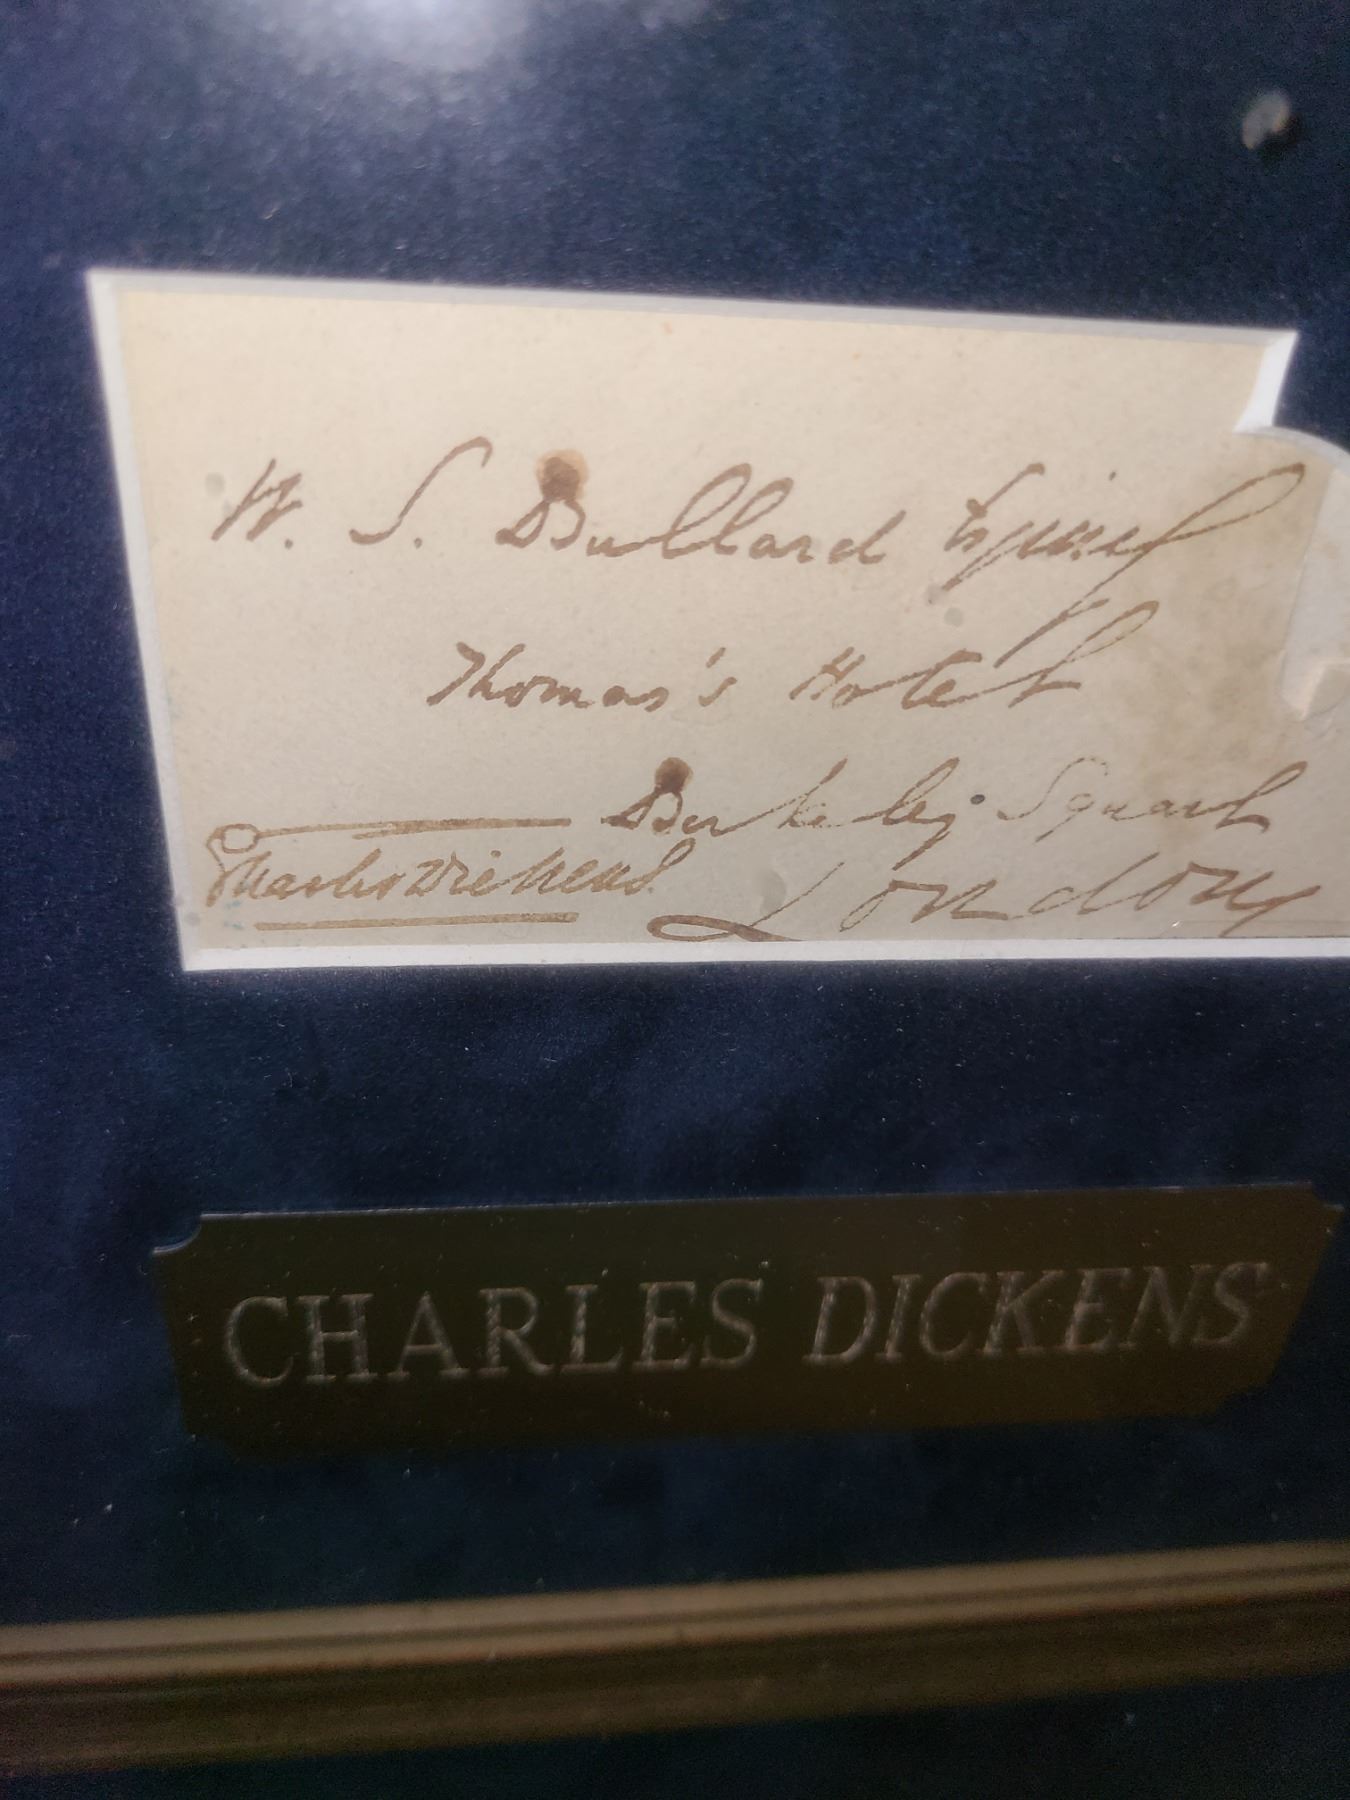 W. S. Bullard Esquire
Thomas's Hotel
Berkeley Square
Charles Dickens. London
CHARLES DICKENS